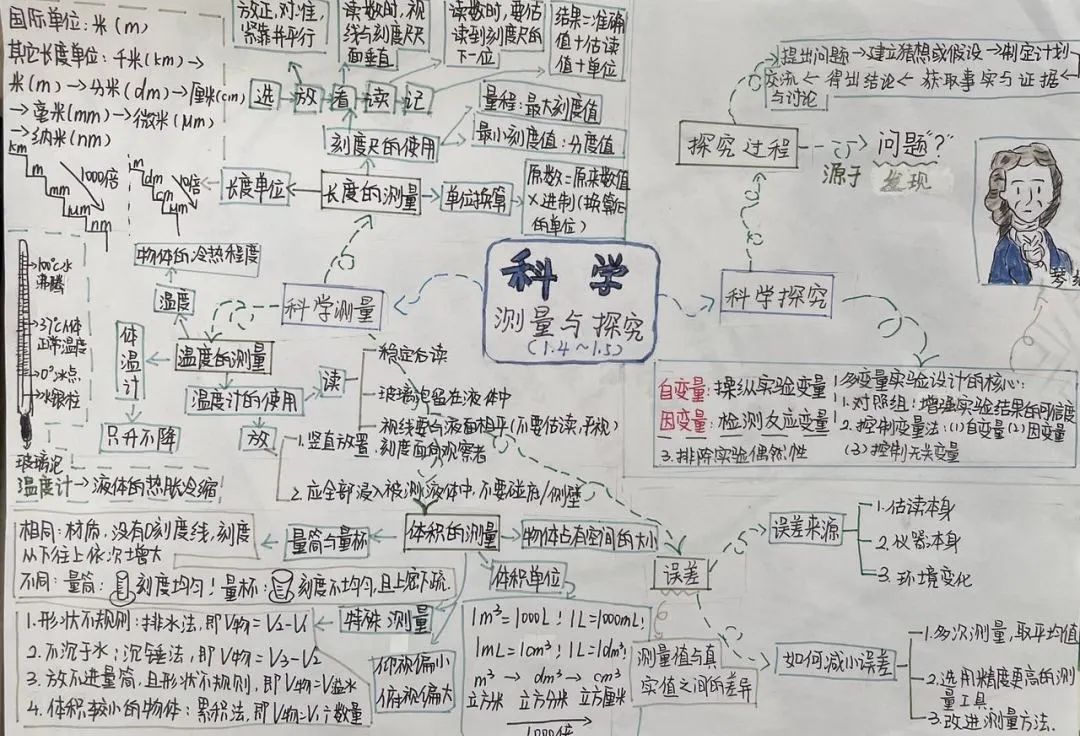 科学
测量与探究
(1.4~1.5)
国际单位:米(m)
其它长度单位:千米(km)→
米(m)→分米(dm)→厘米(cm)
→毫米(mm)→微米(μm)
→纳米(nm)
km
m
mm
μm
nm
1000倍
m
dm
cm
μm
10倍
放正,对准,
紧靠并平行
读数时,视
线与刻度尺尺
面垂直
读数时,要估
读到刻度尺的
下一位
结果=准确
值+估读
值+单位
选
放
看
读
记
刻度尺的使用
量程:最大刻度值
最小刻度值:分度值
长度单位
长度的测量
单位换算
原数=原来数值
×进制(换算后
的单位)
科学测量
物体的冷热程度
温度
温度的测量
体温计
只升不降
温度计的使用
读
稳定后读
玻璃泡留在液体中
视线要与液面相平(不要估读,平视)
放
1.竖直放置,
刻度面向观察者
2.应全部浸入被测液体中,不要碰底/侧壁
100℃水
沸腾
37℃人体
正常温度
0°冰点
水银柱
玻璃泡
温度计→液体的热胀冷缩
体积的测量
物体占有空间的大小
量筒与量杯
相同:材质,没有0刻度线,刻度
从下往上依次增大
不同:量筒:刻度均匀!量杯:刻度不均匀,且上密下疏.
特殊测量
1.形状不规则:排水法,即V物=V2-V1
2.不沉于水:沉锤法,即V物=V3-V2
3.放不进量筒,且形状不规则,即V物=V溢水
4.体积较小的物体:累积法,即V物=V1÷数量
仰视偏小
俯视偏大
体积单位
1m³=1000L!1L=1000mL!
1mL=1cm³!1L=1dm³!
m³→dm³→cm³
立方米 立方分米 立方厘米
1000倍
误差
测量值与真
实值之间的差异
误差来源
1.估读本身
2.仪器本身
3.环境变化
如何减小误差
1.多次测量,取平均值
2.选用精度更高的测
量工具.
3.改进测量方法.
科学探究
探究过程
提出问题→建立猜想或假设→制定计划
交流←得出结论←获取事实与证据
与讨论
源于
问题"?"
发现
自变量:操纵实验变量
因变量:检测反应变量
3.排除实验偶然性
多变量实验设计的核心:
1.对照组:增强实验结果的可信度
2.控制变量法:(1)自变量(2)因变量
(3)控制无关变量